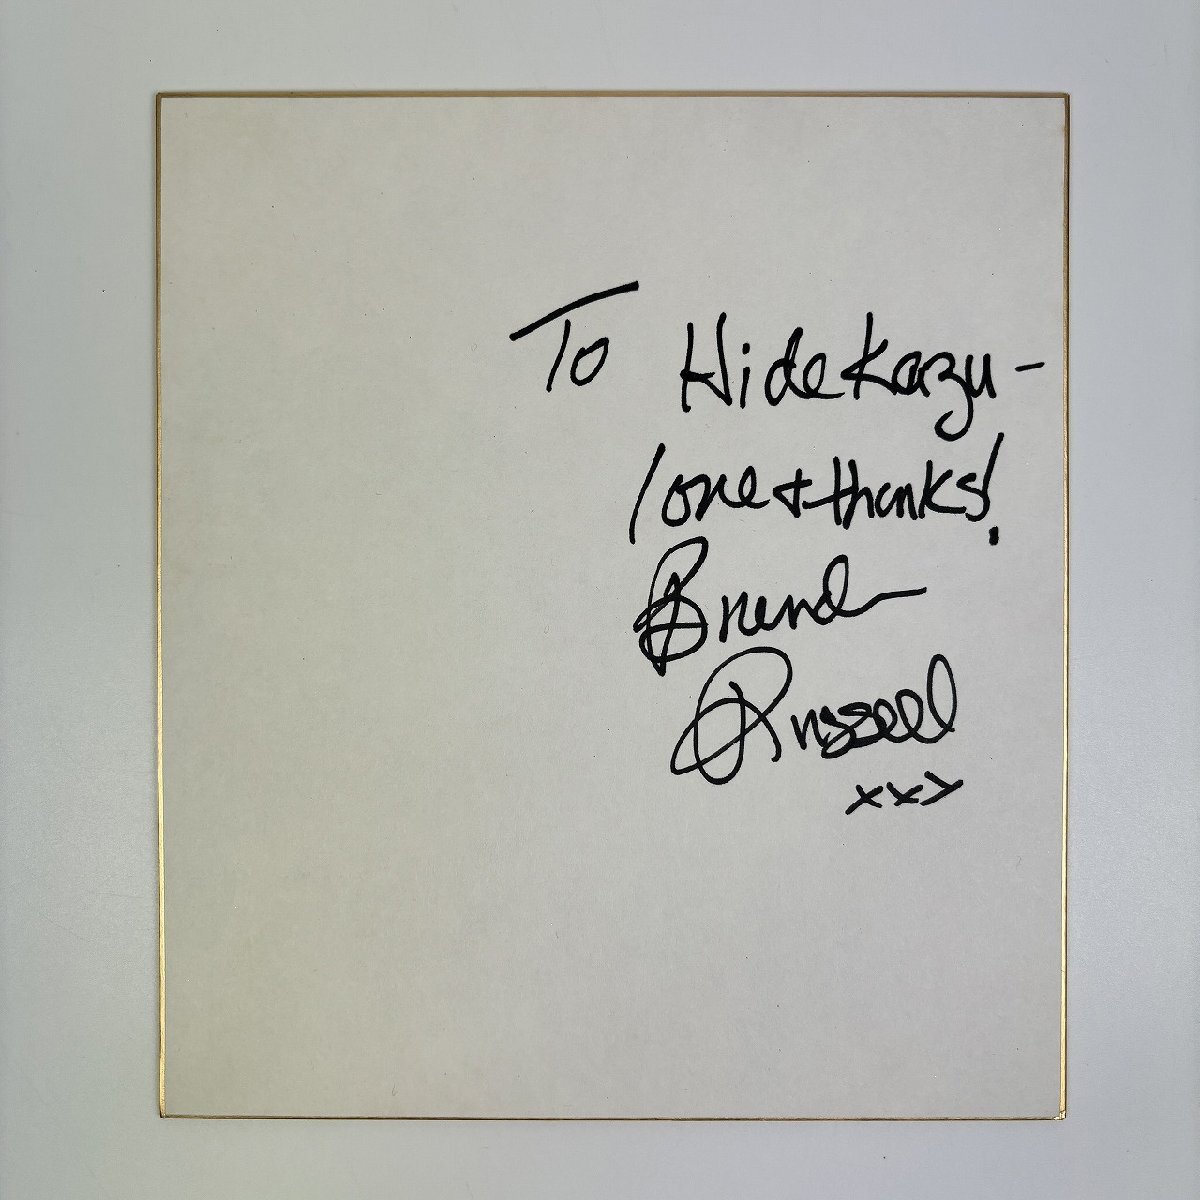 To Hidekazu -
love + thanks!
Brenda
Russell
xxx